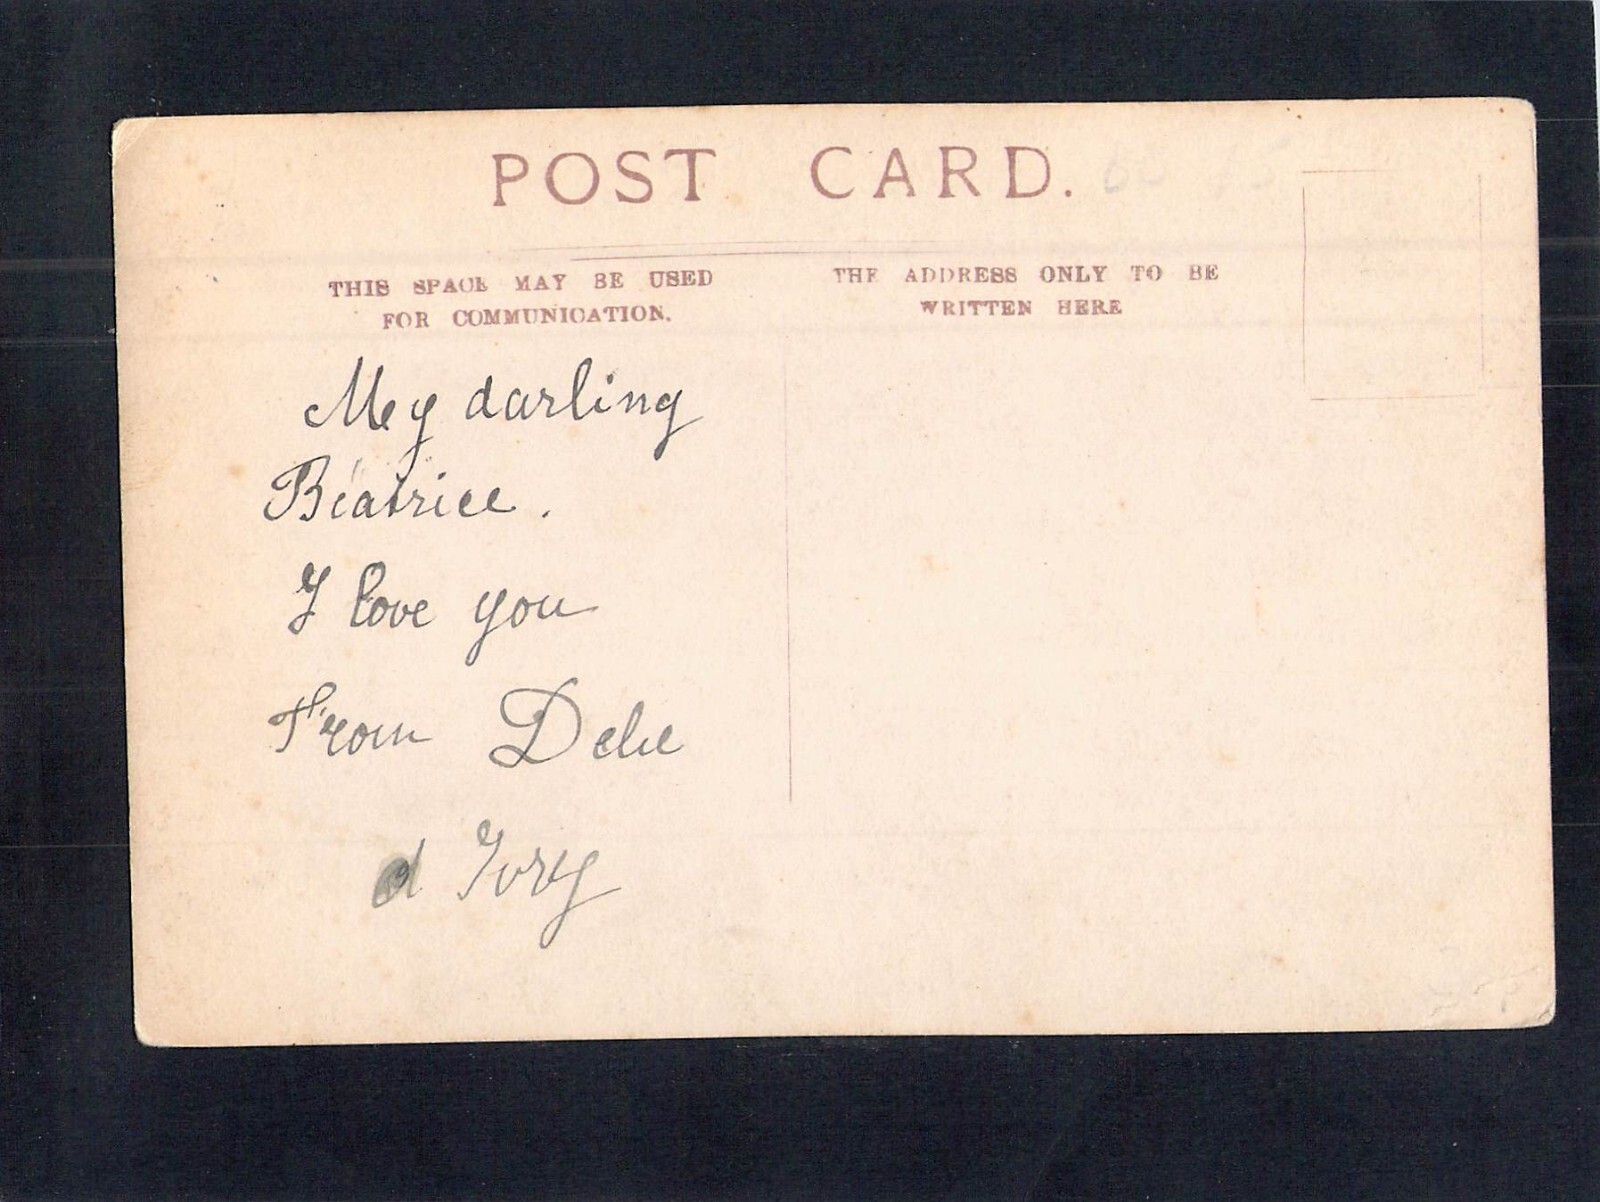 POST CARD.
THIS SPACE MAY BE USED
FOR COMMUNICATION.
THE ADDRESS ONLY TO BE
WRITTEN HERE
My darling
Beatrice.
I love you
From